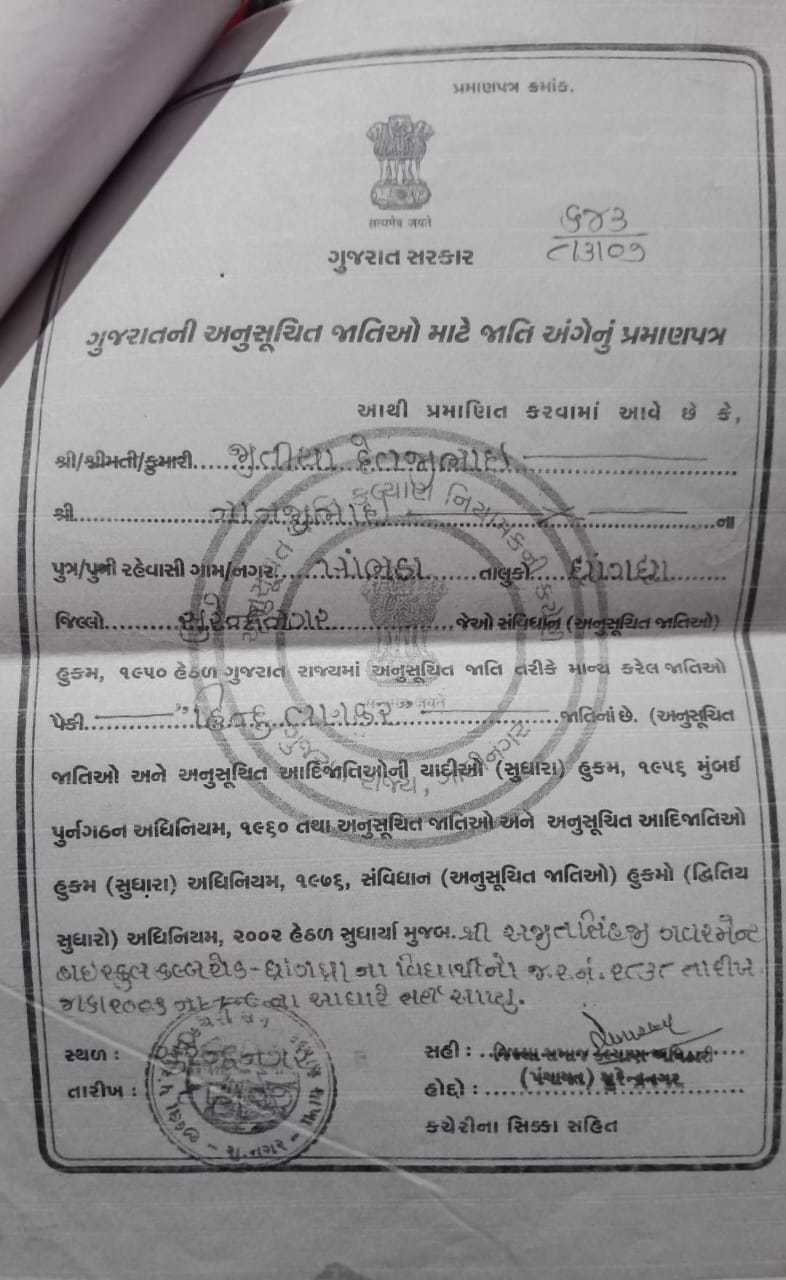 પ્રમાણપત્ર ક્રમાંક.
सत्यमेव जयते
ગુજરાત સરકાર
૯૪૩
૮/૩/૦૭
ગુજરાતની અનુસૂચિત જાતિઓ માટે જાતિ અંગેનું પ્રમાણપત્ર
આથી પ્રમાણિત કરવામાં આવે છે કે,
શ્રી/શ્રીમતી/કુમારી
શ્રી ના
પુત્ર/પુત્રી રહેવાસી ગામ/નગર ખાંભડા તાલુકો ધ્રાંગધ્રા
જિલ્લો સુરેન્દ્રનગર જેઓ સંવિધાન (અનુસૂચિત જાતિઓ)
હુકમ, ૧૯૫૦ હેઠળ ગુજરાત રાજ્યમાં અનુસૂચિત જાતિ તરીકે માન્ય કરેલ જાતિઓ
પૈકી "હિન્દુ વણકર" જાતિનાં છે. (અનુસૂચિત
જાતિઓ અને અનુસૂચિત આદિજાતિઓની યાદીઓ (સુધારા) હુકમ, ૧૯૫૬ મુંબઈ
પુર્નગઠન અધિનિયમ, ૧૯૬૦ તથા અનુસૂચિત જાતિઓ અને અનુસૂચિત આદિજાતિઓ
હુકમ (સુધારા) અધિનિયમ, ૧૯૭૬, સંવિધાન (અનુસૂચિત જાતિઓ) હુકમો (દ્વિતિય
સુધારો) અધિનિયમ, ૨૦૦૨ હેઠળ સુધાર્યા મુજબ. શ્રી અજીતસિંહજી ગવરમેન્ટ
હાઇસ્કુલ ધ્રાંગધ્રા ના જ.ર.નં. ૨૮૩૮ તારીખ
ના આધારે આપ્યુ.
સ્થળ : સુરેન્દ્રનગર
તારીખ :
સહી : જિલ્લા સમાજ કલ્યાણ અધિકારી
હોદ્દો : (પંચાયત) સુરેન્દ્રનગર
કચેરીના સિક્કા સહિત